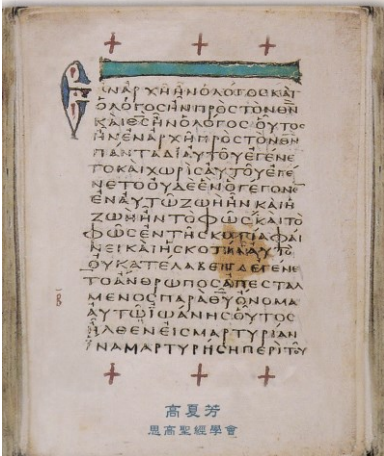 ΕΝΑΡΧΗΗΝΟΛΟΓΟΣΚΑΙ
ΟΛΟΓΟΣΗΝΠΡΟΣΤΟΝΘΝ
ΚΑΙΘΣΗΝΟΛΟΓΟΣ·ΟΥΤΟΣ
ΗΝΕΝΑΡΧΗΠΡΟΣΤΟΝΘΝ
ΠΑΝΤΑΔΙΑΥΤΟΥΕΓΕΝΕ
ΤΟΚΑΙΧΩΡΙΣΑΥΤΟΥΕΓΕ
ΝΕΤΟΟΥΔΕΕΝΟΓΕΓΟΝΕ
ΕΝΑΥΤΩΖΩΗΗΝΚΑΙΗ
ΖΩΗΗΝΤΟΦΩΣΚΑΙΤΟ
ΦΩΣΕΝΤΗΣΚΟΤΙΑΦΑΙ
ΝΕΙΚΑΙΗΣΚΟΤΙΑΑΥΤΟ
ΟΥΚΑΤΕΛΑΒΕΝ
ΤΟΑΝΘΡΩΠΟΣΑΠΕΣΤΑΛ
ΜΕΝΟΣΠΑΡΑΘΥΟΝΟΜΑ
ΑΥΤΩΙΩΑΝΗΣΟΥΤΟΣ
ΗΛΘΕΝΕΙΣΜΑΡΤΥΡΙΑΝ
ΙΝΑΜΑΡΤΥΡΗΣΗΠΕΡΙΤΟΥ
高夏芳
思高聖經學會